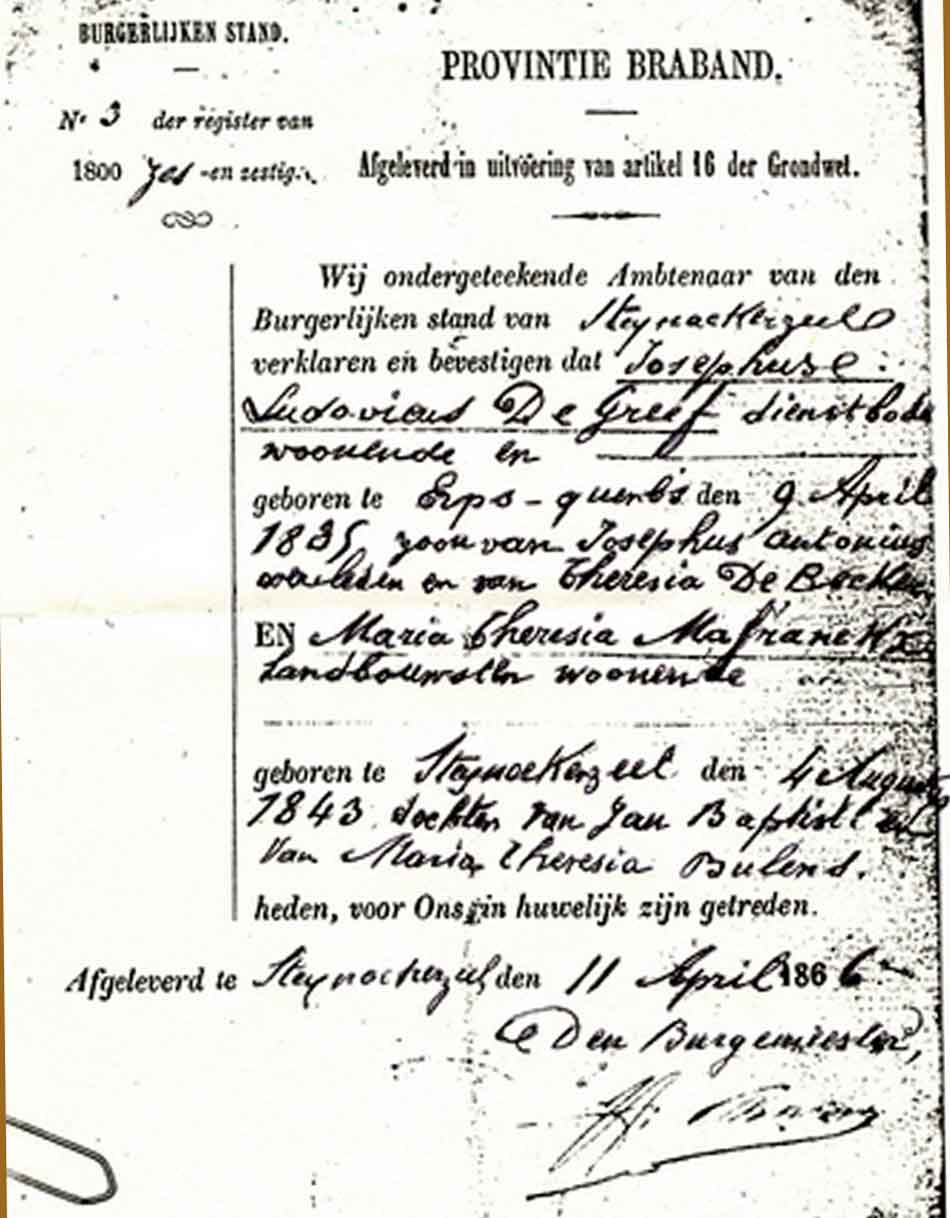 BURGERLIJKEN STAND.
PROVINTIE BRABAND.
Nr 3 der register van
1800 zes -en zestig.
Afgeleverd in uitvoering van artikel 16 der Grondwet.
Wij ondergeteekende Ambtenaar van den
Burgerlijken stand van Steynockerzeel
verklaren en bevestigen dat Josephus
Ludovicus De Greef dienstbode
woonende en
geboren te Erps-querbs den 9 April
1835 zoon van Josephus antonius
overleden en van Theresia De Becker
EN Maria Theresia
Landbouwster woonende
geboren te Steynockerzeel den 4 August
1843 dochter van Jan Baptist en
van Maria Theresia Bulens.
heden, voor Ons in huwelijk zijn getreden.
Afgeleverd te Steynockerzeel den 11 April 1866
Den Burgemeester,